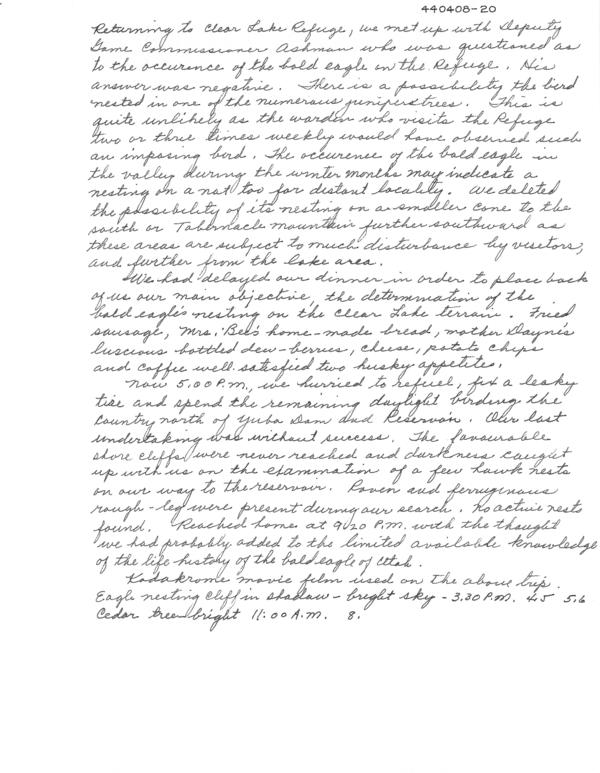 440408-20
Returning to Clear Lake Refuge, we met up with Deputy
Game Commissioner Ashman who was questioned as
to the occurence of the bald eagle on the Refuge. His
answer was negative. There is a possibility the bird
nested in one of the numerous juniper trees. This is
quite unlikely as the warden who visits the Refuge
two or three times weekly would have observed such
an imposing bird. The occurence of the bald eagle in
the valley during the winter months may indicate a
nesting on a not too far distant locality. We deleted
the possibility of its nesting on a smaller cone to the
south or Tabernacle mountain further southward as
these areas are subject to much disturbance by visitors,
and further from the lake area.
We had delayed our dinner in order to place back
of us our main objective, the determination of the
bald eagle's nesting on the Clear Lake terrain. Fried
sausage, Mrs. Bee's home-made bread, mother Dayne's
luscious bottled dew-berries, cheese, potato chips
and coffee well satisfied two husky appetites.
Now 5.00 P.M., we hurried to refuel, fix a leaky
tire and spend the remaining daylight birding the
country north of Yuba Dam and Reservoir. Our last
undertaking was without success. The favourable
shore cliffs were never reached and darkness caught
up with us on the examination of a few hawk nests
on our way to the reservoir. Raven and ferruginous
rough-leg were present during our search. No active nests
found. Reached home at 9:20 P.M. with the thought
we had probably added to the limited available knowledge
of the life history of the bald eagle of Utah.
Kodakrome movie film used on the above trip.
Eagle nesting cliff in shadow - bright sky - 3.30 P.M. 4.5 5.6
Cedar tree bright 11:00 A.M. 8.